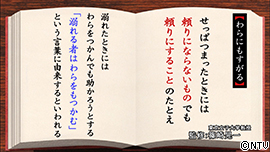 【わらにもすがる】
せっぱつまったときには
頼りにならないものでも
頼りにすること のたとえ
溺れたときには
わらをつかんでも助かろうとする
「溺れる者はわらをもつかむ」
という言葉に由来するといわれる
©NTV